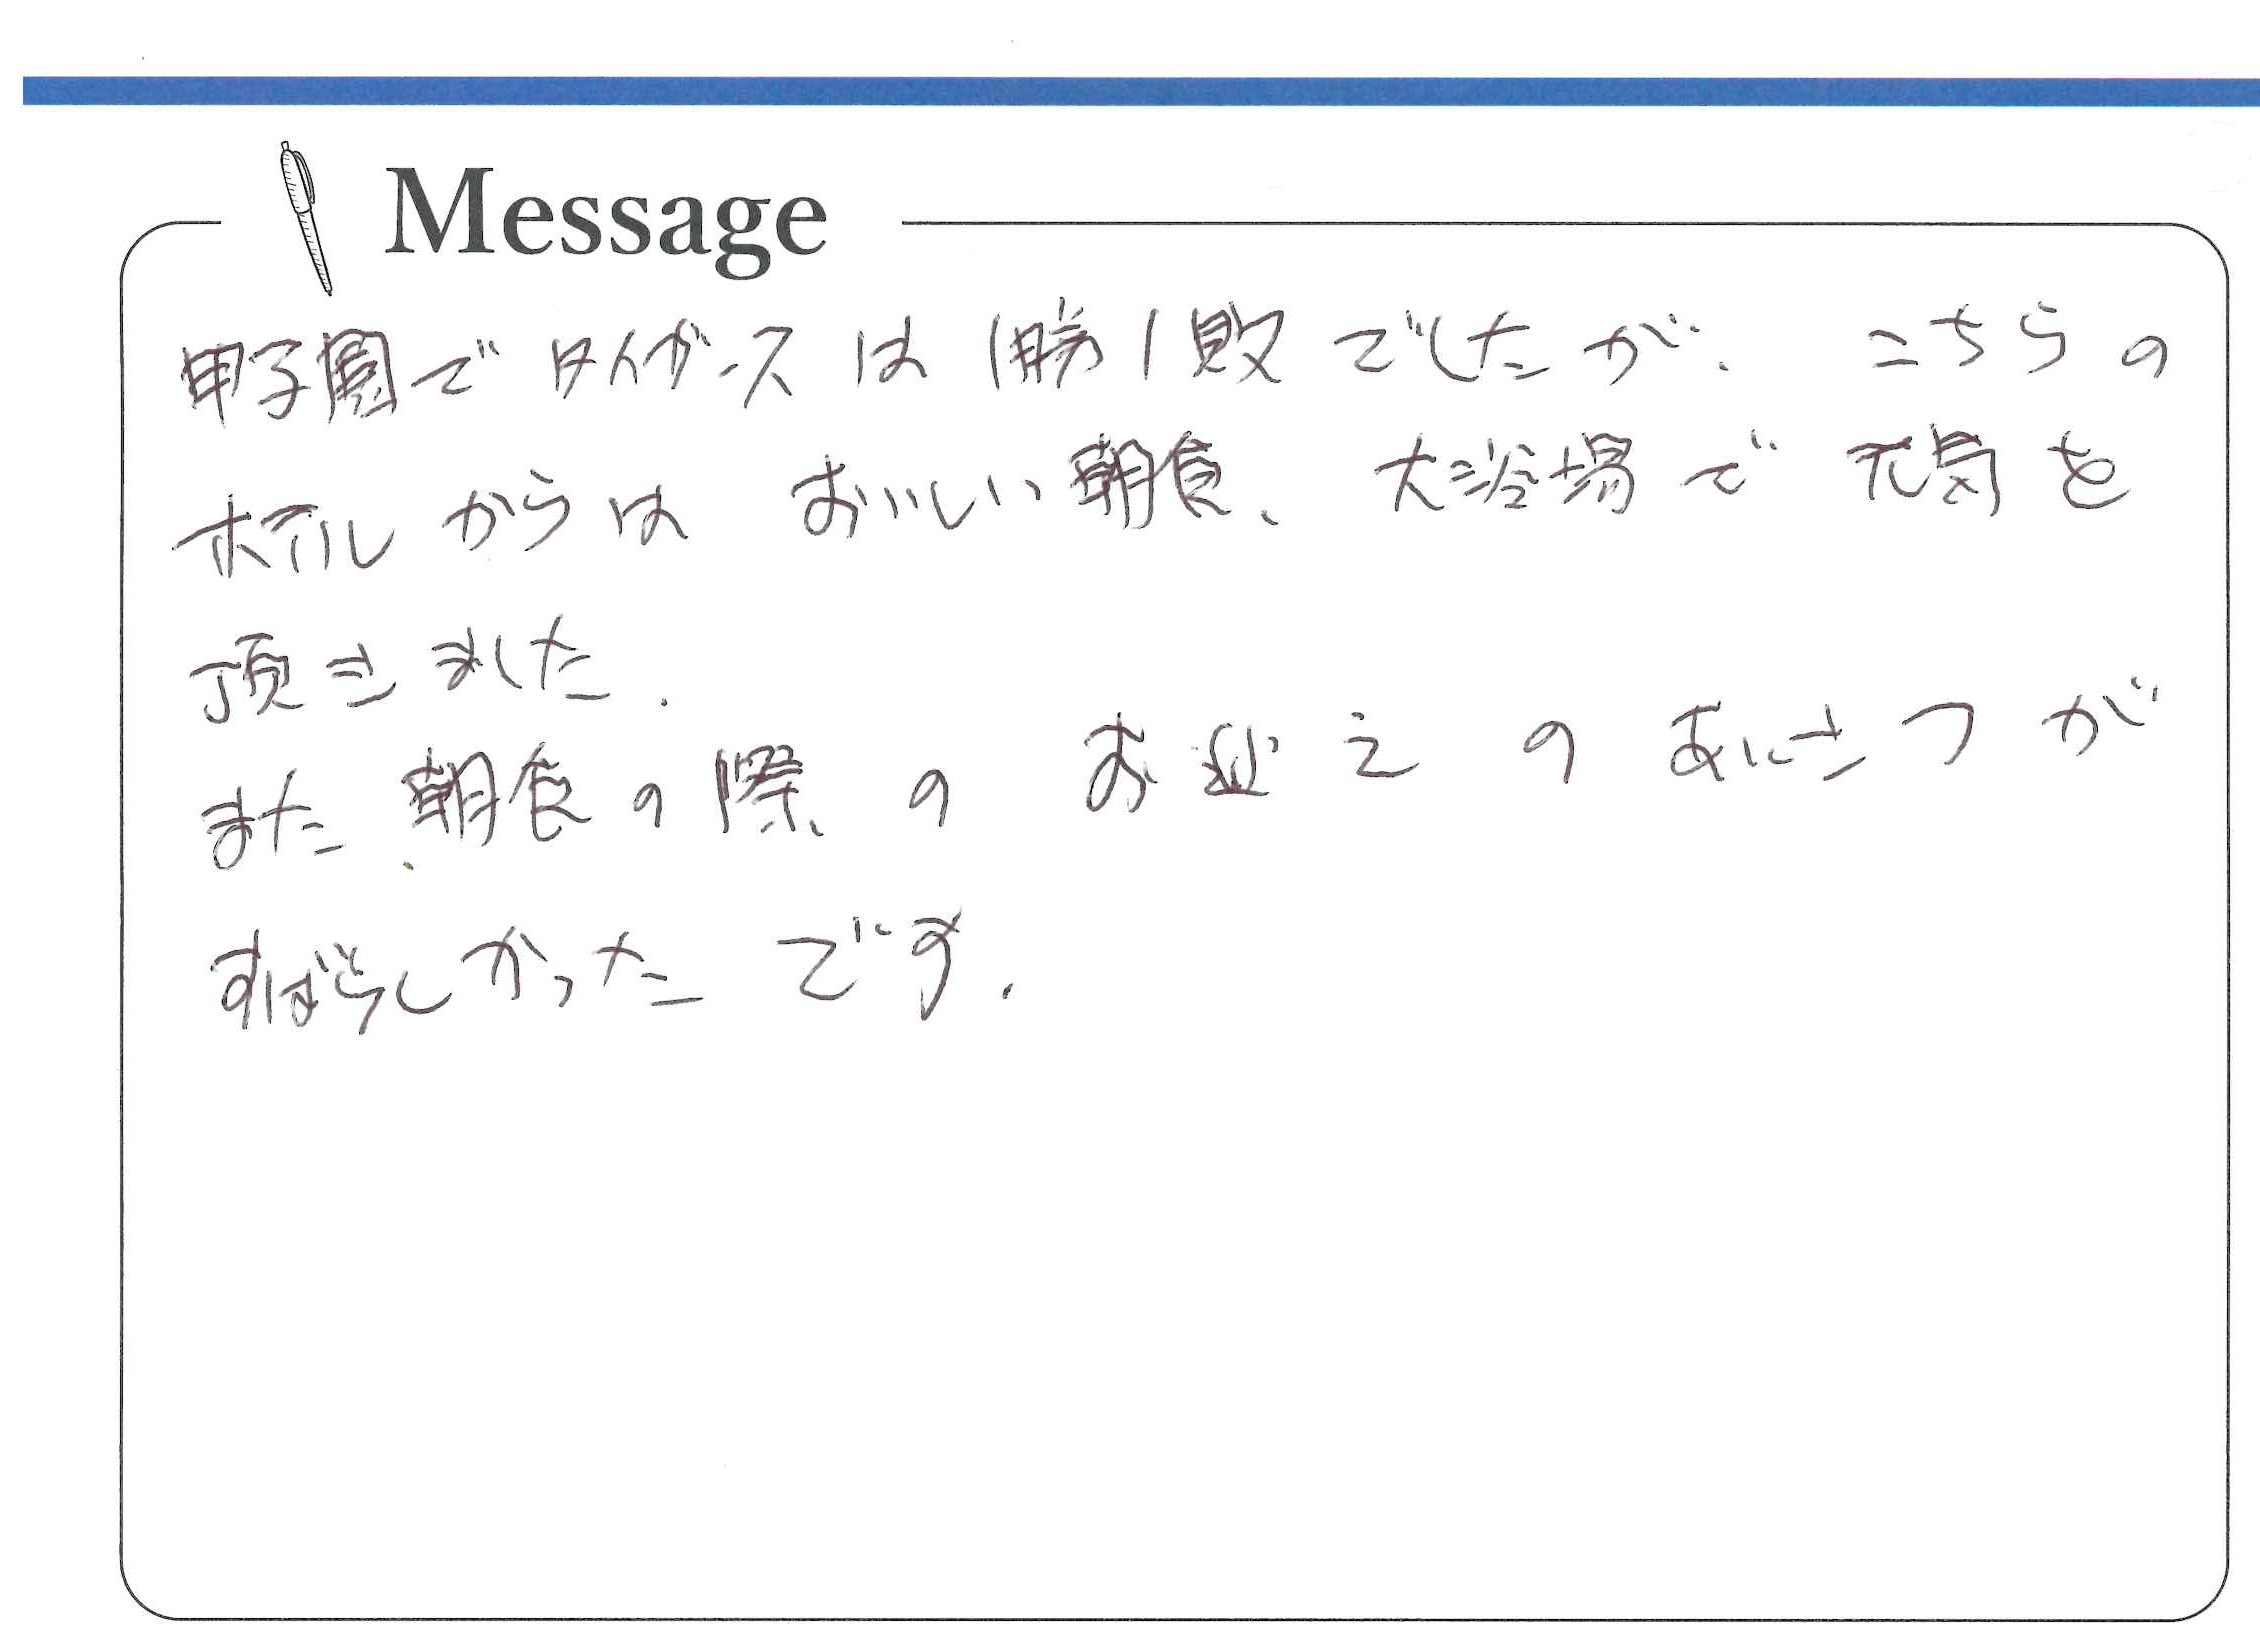 Message
甲子園でタイガースは1勝1敗でしたが、こちらの
ホテルからはおいしい朝食、大浴場で元気を
頂きました。
また、朝食の際のお迎えのあいさつが
すばらしかったです。